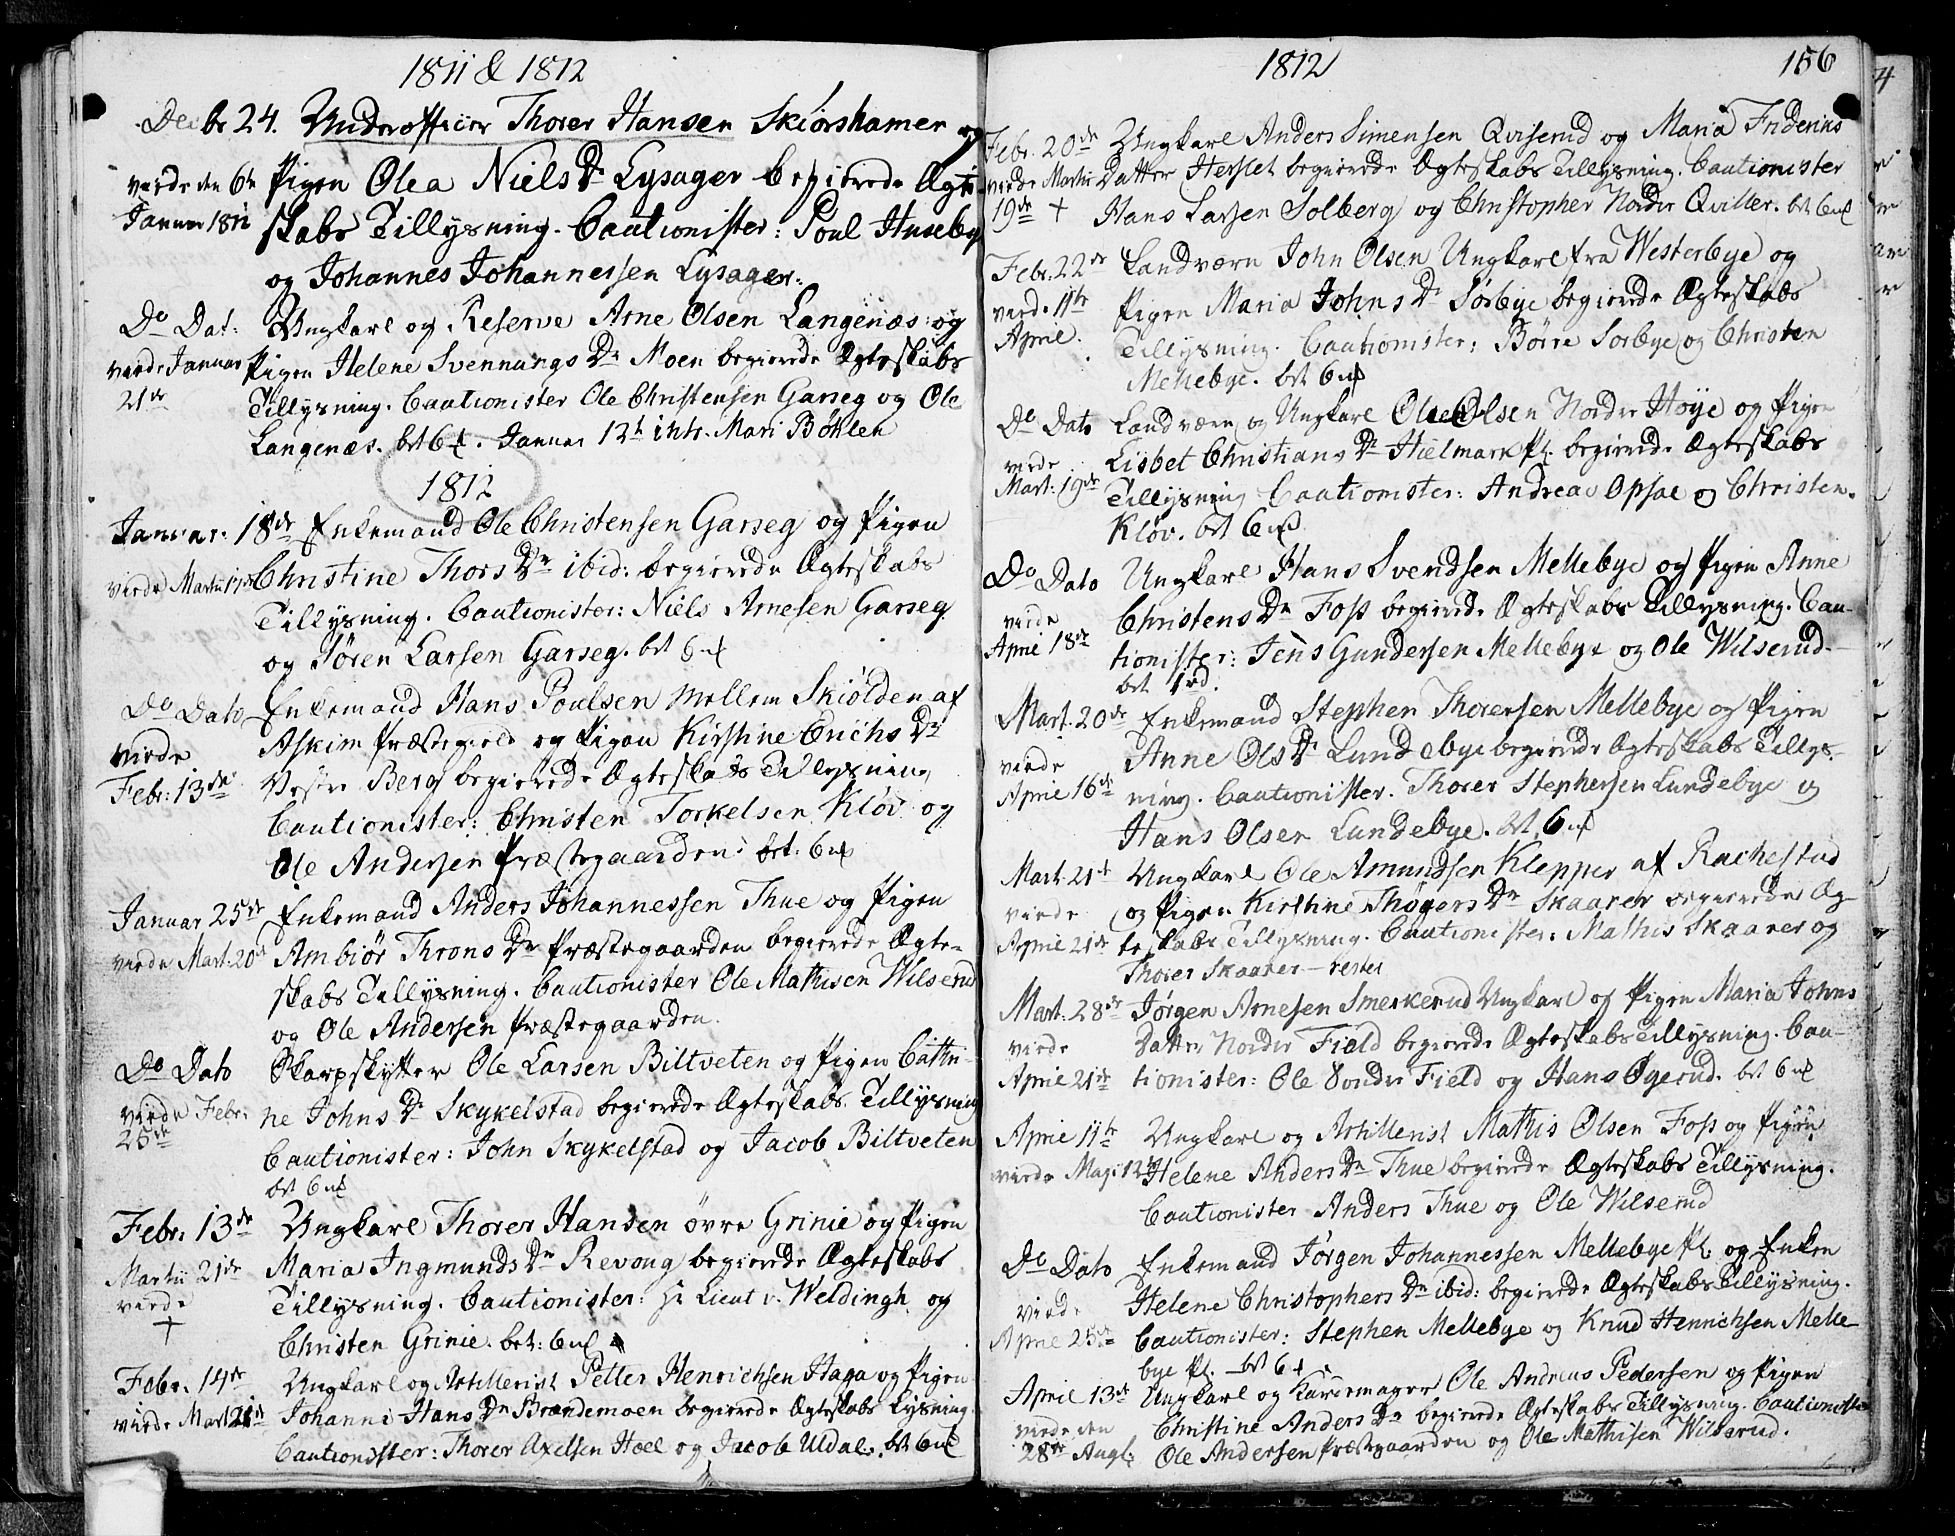 1811 & 1812
Decbr 24. Underofficier Thorer Hansen Skiørshamer og
viede den 6te Pigen Olea Niels Dr Lysager begierede Ægte-
Januar 1812 skabs Tillysning. Cautionister: Poul Huseby
og Johannes Johannessen Lysager.
Do Dat: Ungkarl og Reserve Arne Olsen Langenæs og
viede Januar Pigen Helene Svennungs Dr Moen begierede Ægteskabs
21de Tillysning. Cautionister Ole Christensen Garseg og Ole
Langenæs. bet 6 . Januar 13t intr. Mari Bøhlen
1812
Januar. 18de Enkemand Ole Christensen Garseg og Pigen
viede Martii 17de Christine Thors Dr ibid: begierede Ægteskabs
Tillysning. Cautionister: Niels Arnesen Garseg
og Søren Larsen Garseg. bet 6
Do Dato Enkemand Hans Poulsen Mellem Skiølden af
viede Askim Præstegield og Pigen Kirstine Erichs Dr
Febr: 13de Vestre Berg begierede Ægteskabs Tillysning
Cautionister: Christen Torkelsen Kløv og
Ole Andersen Præstegaarden: bet: 6
Januar 25de Enkemand Anders Johannessen Thue og Pigen
viede Mart. 20de Ambiør Throns Dr Præstegaarden begierede Ægte-
skabs Tillysning. Cautionister Ole Mathisen Wilserud
og Ole Andersen Præstegaarden.
Do Dato Skarpskytter Ole Larsen Biltveten og Pigen Cathri-
viede Febr. ne Johns Dr Skykelstad begierede Ægteskabs Tillysning
25de Cautionister: John Skykelstad og Jacob Biltveten
bet 6
Febr: 13de Ungkarl Thorer Hansen øvre Grinie og Pigen
Martii 21de Maria Ingmunds Dr Revoug begierede Ægteskabs
viede Tillysning. Cautionister: Hr Lieut v. Weldingh og
+ Christen Grinie. bet: 6
Febr. 14de Ungkarl og Artillerist Petter Henrichsen Haga og Pigen
viede Mart 21de Johanne Hans Dr Brændemoen begierede Ægteskabs Lysning.
Cautionister: Thorer Axelsen Hoel og Jacob Uldal. bet 6
1812 156
Febr. 20de Ungkarl Anders Simensen Qviserud og Maria Friderichs
viede Martii Datter Herslet begierede Ægteskabs Tillysning. Cautionister
19de + Hans Larsen Solberg og Christopher Nordre Qviller. bet 6
Febr. 22de Landværn John Olsen Ungkarl fra Westerbye og
viede 11te Pigen Maria Johns Dr Sørbye begierede Ægteskabs
April. Tillysning. Cautionister: Børre Sørbye og Christen
Mellebye. bet 6
Do Dato Landværn og Ungkarl Ole Olsen Nordre Høye og Pigen
viede Lisbet Christians Dr Hielmark Pl. begierede Ægteskabs
Mart: 19de Tillysning Cautionister: Andreas Opsal og Christen
Kløv. bet 6
Do Dato Ungkarl Hans Svendsen Mellebye og Pigen Anne
viede Christens Dr Foss begierede Ægteskabs Tillysning. Cau-
April 18de tionister: Jens Gundersen Mellebye og Ole Wilserud.
bet 1rd.
Mart. 20de Enkemand Stephen Thorersen Mellebye og Pigen
viede Anne Ols Dr Lundebye begierede Ægteskabs Tillys-
April 16de ning. Cautionister. Thorer Stephersen Lundebye og
Hans Olsen Lundebye. bet 6
Mart. 21de Ungkarl Ole Amundsen Klepper af Rachestad
viede og Pigen Kirstine Thøgers Dr Skaarer begierede Æg-
April 21de teskabs Tillysning. Cautionister: Mathis Skaarer og
Thorer Skaarer – rester
Mart. 28de Jørgen Arnesen Smerkerud Ungkarl og Pigen Maria Johns
viede Datter Nordre Field begierede Ægteskabs Tillysning. Cau-
April 21de tionister: Ole Søndre Field og Hans Øgerud. bet 6
April 11te Ungkarl og Artillerist Mathis Olsen Foss og Pigen
viede Maji 12te Helene Anders Dr Thue begierede Ægteskabs Tillysning.
Cautionister Anders Thue og Ole Wilserud
Do Dato Enkemand Jørgen Johannessen Mellebye Pl. og Enken
viede Helene Christophers Dr ibid: begierede Ægteskabs Tillysning.
April 25de Cautionister: Stephen Mellebye og Knud Henrichsen Melle-
bye Pl. – bet 6
April 13de Ungkarl og Karremager Ole Andreas Pedersen og Pigen
viede den Christine Anders Dr begierede Ægteskabs Tillysning. Cautionister
28de Augt: Ole Andersen Præstegaarden og Ole Mathisen Wilserud.